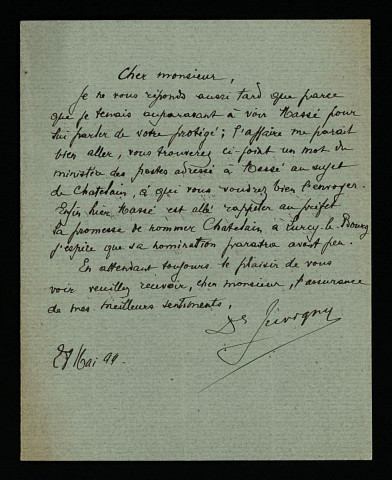 Cher monsieur,
Je ne vous réponds aussi tard que parce
que je tenais auparavant à voir Massé pour
lui parler de votre protégé ; l'affaire me parait
bien aller, vous trouverez ci-joint un mot du
ministre des postes adressé à Massé au sujet
de Chatelain, à qui vous voudrez bien l'envoyer.
Enfin hier, Massé est allé rappeler au préfet
la promesse de nommer Chatelain à Lurcy-le-Bourg
j'espère que sa nomination paraitra avant peu.
En attendant toujours le plaisir de vous
voir veuillez recevoir, cher monsieur, l'assurance
de mes meilleurs sentiments,
Dr
Mai 99.